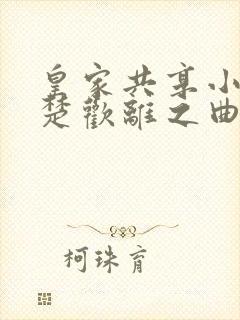 皇家共享小
楚歡離之曲
柯珠育